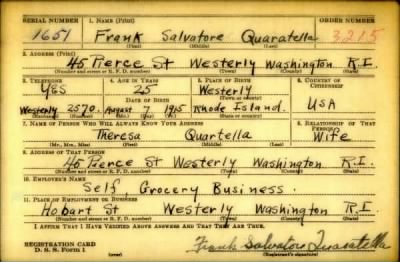 SERIAL NUMBER 1. NAME (Print) ORDER NUMBER
1651 Frank Salvatore Quaratella 3215
(First) (Middle) (Last)
2. ADDRESS (Print)
45 Pierce St Westerly Washington R.I.
(Number and street or R. F. D. number) (Town) (County) (State)
3. TELEPHONE 4. AGE IN YEARS 5. PLACE OF BIRTH 6. COUNTRY OF CITIZENSHIP
Yes 25 Westerly
DATE OF BIRTH (Town or county)
Westerly 2570. August 7 1915 Rhode Island. USA
(Mo.) (Day) (Yr.) (State or country)
7. NAME OF PERSON WHO WILL ALWAYS KNOW YOUR ADDRESS 8. RELATIONSHIP OF THAT PERSON
Theresa Quartella Wife
(Mr., Mrs., Miss) (First) (Middle) (Last)
9. ADDRESS OF THAT PERSON
45 Pierce St Westerly Washington R.I.
(Number and street or R. F. D. number) (Town) (County) (State)
10. EMPLOYER'S NAME
Self, Grocery Business.
11. PLACE OF EMPLOYMENT OR BUSINESS
Hobart St Westerly Washington R.I
(Number and street or R. F. D. number) (Town) (County) (State)
I AFFIRM THAT I HAVE VERIFIED ABOVE ANSWERS AND THAT THEY ARE TRUE.
REGISTRATION CARD
D. S. S. Form 1 (over) Frank Salvatore Quaratella
(Registrant's signature)